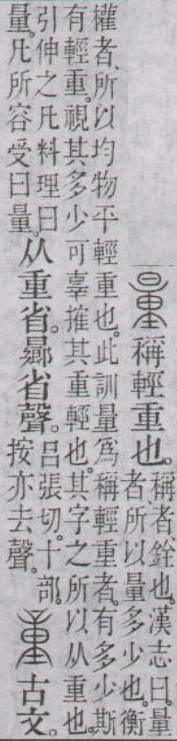 量稱輕重也。
稱者、銓也。漢志曰。量
者所以量多少也。衡
權者、所以均物平輕重也。此訓量爲稱輕重者。有多少斯
有輕重。視其多少可辜搉其重輕也。其字之所以从重也。
引伸之凡料理曰
量。凡所容受曰量。
从重省。曏省聲。
呂張切。十部。
按亦去聲。
古文。